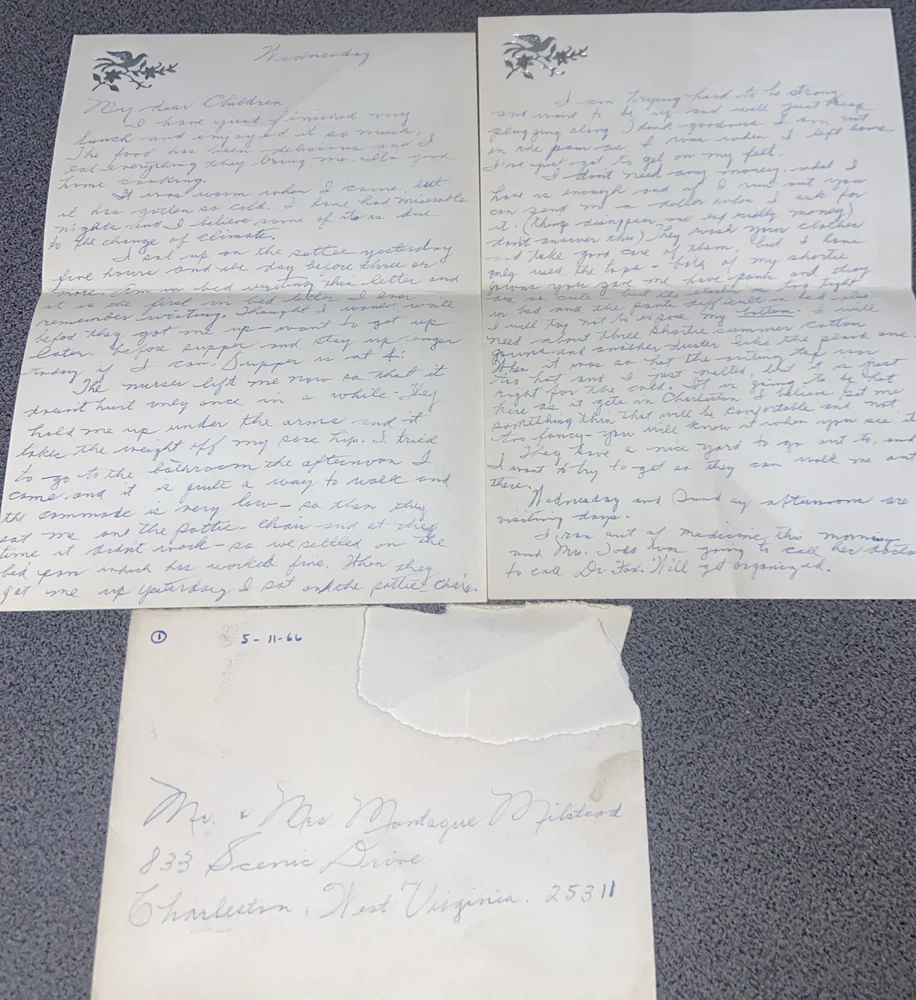 Wednesday
My dear Children,
I have just finished my
lunch and enjoyed it so much.
The food has been delicious and I
eat everything they bring me. It's good
home cooking.
It was warm when I came, but
it has gotten so cold. I have had miserable
nights and I believe some of it is due
to the change of climate.
I sat up on the settee yesterday
five hours and the day before three or
more. Am in bed writing this letter and
it is the first in bed letter I ever
remember writing. Thought I would write
before they got me up - want to get up
later - before supper and stay up longer
today if I can. Supper is at 4:
The nurses lift me now so that it
doesn't hurt only once in a while - They
hold me up under the arms and it
takes the weight off my sore hip. I tried
to go to the bathroom the afternoon I
came and it is quite a way to walk and
the commode is very low - so then they
sat me on the pottie chair - and at that
time it didn't work - so we settled on the
bed pan which has worked fine. When they
got me up yesterday I sat on the pottie chair.
I am trying hard to be strong
and want to be up and will just keep
plugging along. Thank goodness I am not
in the pain as I was when I left home
I've just got to get on my feet.
I don't need any money, what I
have is enough and if I run out you
can send me a dollar when I ask for
it. (things disappear and especially money)
don't answer this) They wash your clothes
and take good care of them, but I have
only used the tops - both of my shortie
gowns you gave me have pants and they
are so cute but the elastic is too tight
in bed and the pants difficult in bed also
I will try not to expose my bottom. I will
need about three shortie summer cotton
gowns and another duster like the plaid one
When it was so hot the suiting top was
too hot and I just melted, but it is just
right for the cold. It is going to be hot
here as it gets in Charleston I believe. Get me
something thin that will be comfortable and not
too fancy - you will know it when you see it
They have a nice yard to go out to, and
I want to try to get so they can walk me out
there.
Wednesday and Sunday afternoons are
visiting days.
I ran out of medicine this morning
and Mrs. was going to call her doctor
to call Dr. Fox. Will get organized.
① 5-11-66
Mr. & Mrs. Montague Milstead
833 Scenic Drive
Charleston, West Virginia. 25311